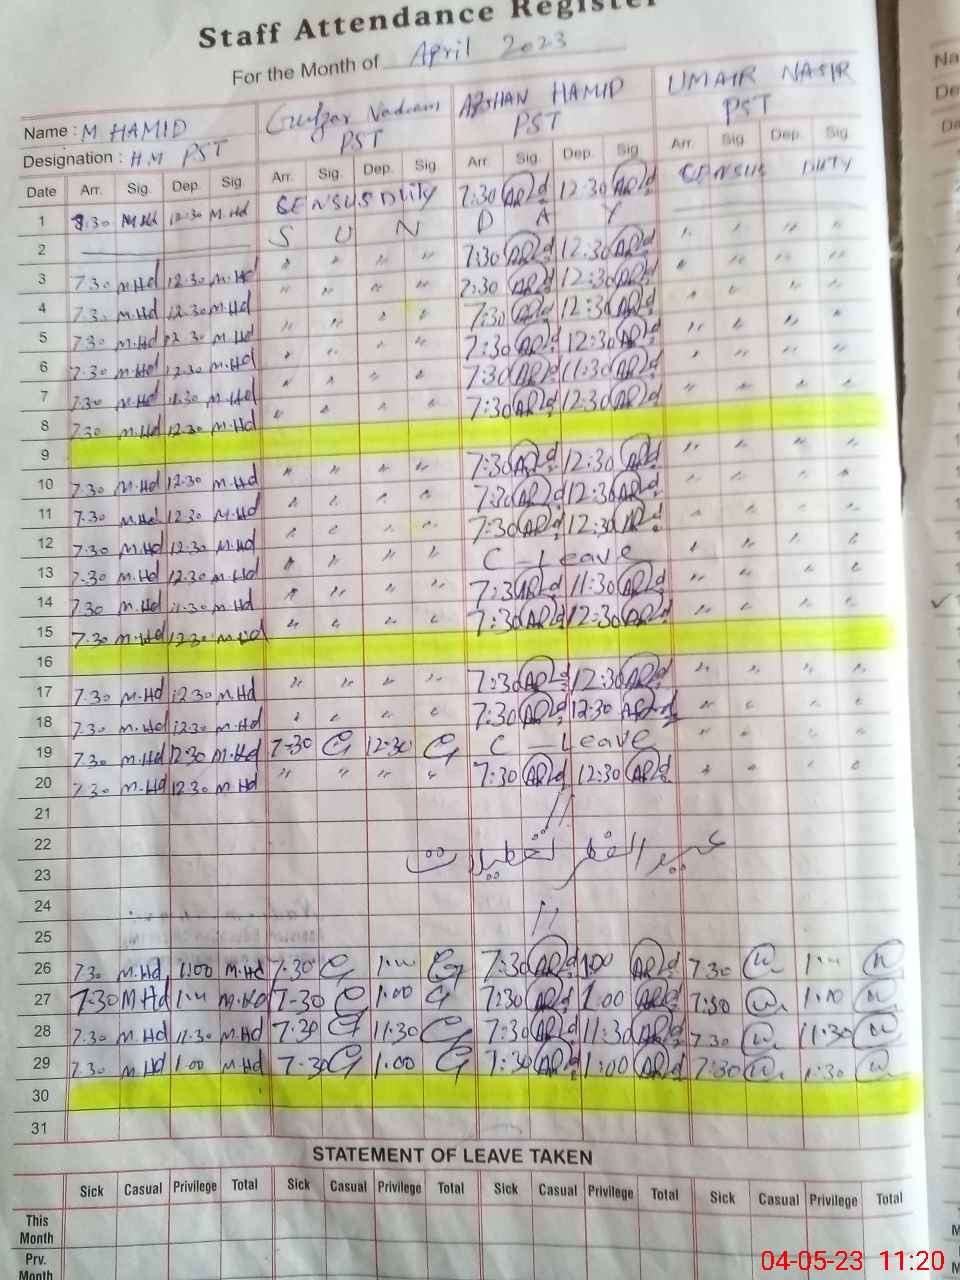 Staff Attendance Register
For the Month of April 2023
Name : M HAMID Gulzar AFSHAN HAMID UMAIR NASIR
Designation : H.M PST PST PST PST
Date Arr. Sig. Dep. Sig Arr. Sig. Dep. Sig. Arr. Sig. Dep. Sig Arr. Sig. Dep. Sig.
1 7.30 M.Hd 12.30 M.Hd CENSUS DUTY 7:30 12:30 CENSUS DUTY
2 S U N D A Y
3 7.30 M.Hd 12.30 M.Hd " " " " 7:30 12:30 " " " "
4 7.30 M.Hd 12.30 M.Hd " " " " 7:30 12:30 " " " "
5 7.30 M.Hd 12.30 M.Hd " " " " 7:30 12:30 " " " "
6 7.30 M.Hd 12.30 M.Hd " " " " 7:30 12:30 " " " "
7 7.30 M.Hd 11.30 M.Hd " " " " 7:30 11:30 " " " "
8 7.30 M.Hd 12.30 M.Hd " " " " 7:30 12:30 " " " "
9
10 7.30 M.Hd 12.30 M.Hd " " " " 7:30 12:30 " " " "
11 7.30 M.Hd 12.30 M.Hd " " " " 7:30 12:30 " " " "
12 7.30 M.Hd 12.30 M.Hd " " " " 7:30 12:30 " " " "
13 7.30 M.Hd 12.30 M.Hd " " " " C - Leave " " " "
14 7.30 M.Hd 11.30 M.Hd " " " " 7:30 11:30 " " " "
15 7.30 M.Hd 12.30 M.Hd " " " " 7:30 12:30 " " " "
16
17 7.30 M.Hd 12.30 M.Hd " " " " 7:30 12:30 " " " "
18 7.30 M.Hd 12.30 M.Hd " " " " 7:30 12:30 " " " "
19 7.30 M.Hd 12.30 M.Hd 7-30 G 12-30 G C - Leave " " " "
20 7.30 M.Hd 12.30 M.Hd " " " " 7:30 12:30 " " " "
21
22
23 عید الفطر تعطیلات
24
25
26 7.30 M.Hd 1.00 M.Hd 7-30 G 1.00 G 7:30 1:00 7.30 1.00
27 7.30 M.Hd 1.00 M.Hd 7-30 G 1.00 G 7:30 1:00 7:30 1:00
28 7.30 M.Hd 11.30 M.Hd 7.30 G 11:30 G 7:30 11:30 7.30 11:30
29 7.30 M.Hd 1.00 M.Hd 7-30 G 1.00 G 7:30 1:00 7:30 1:30
30
31
STATEMENT OF LEAVE TAKEN
Sick Casual Privilege Total Sick Casual Privilege Total Sick Casual Privilege Total Sick Casual Privilege Total
This
Month
Prv.
Month
04-05-23 11:20